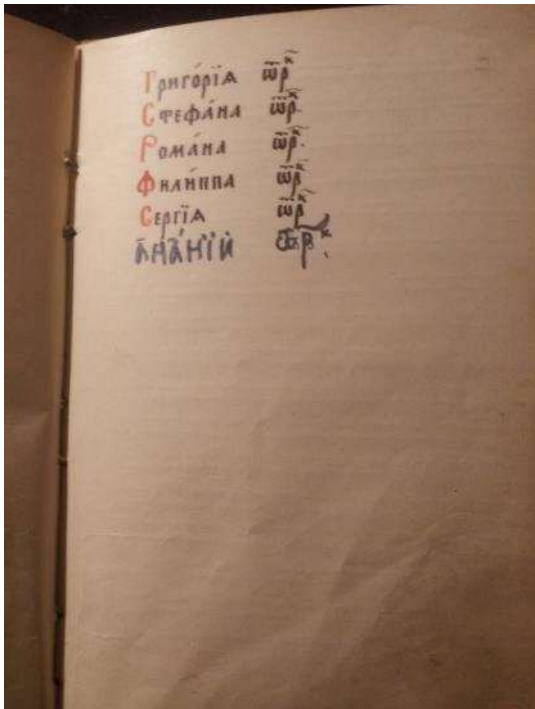 Григо́рїѧ ѿр︮х︯
Стефа́на ѿр︮х︯.
Рома́на ѿр︮х︯.
Фили́ппа ѿр︮х︯
Сергїѧ ѿр︮х︯
А҆на́нїй